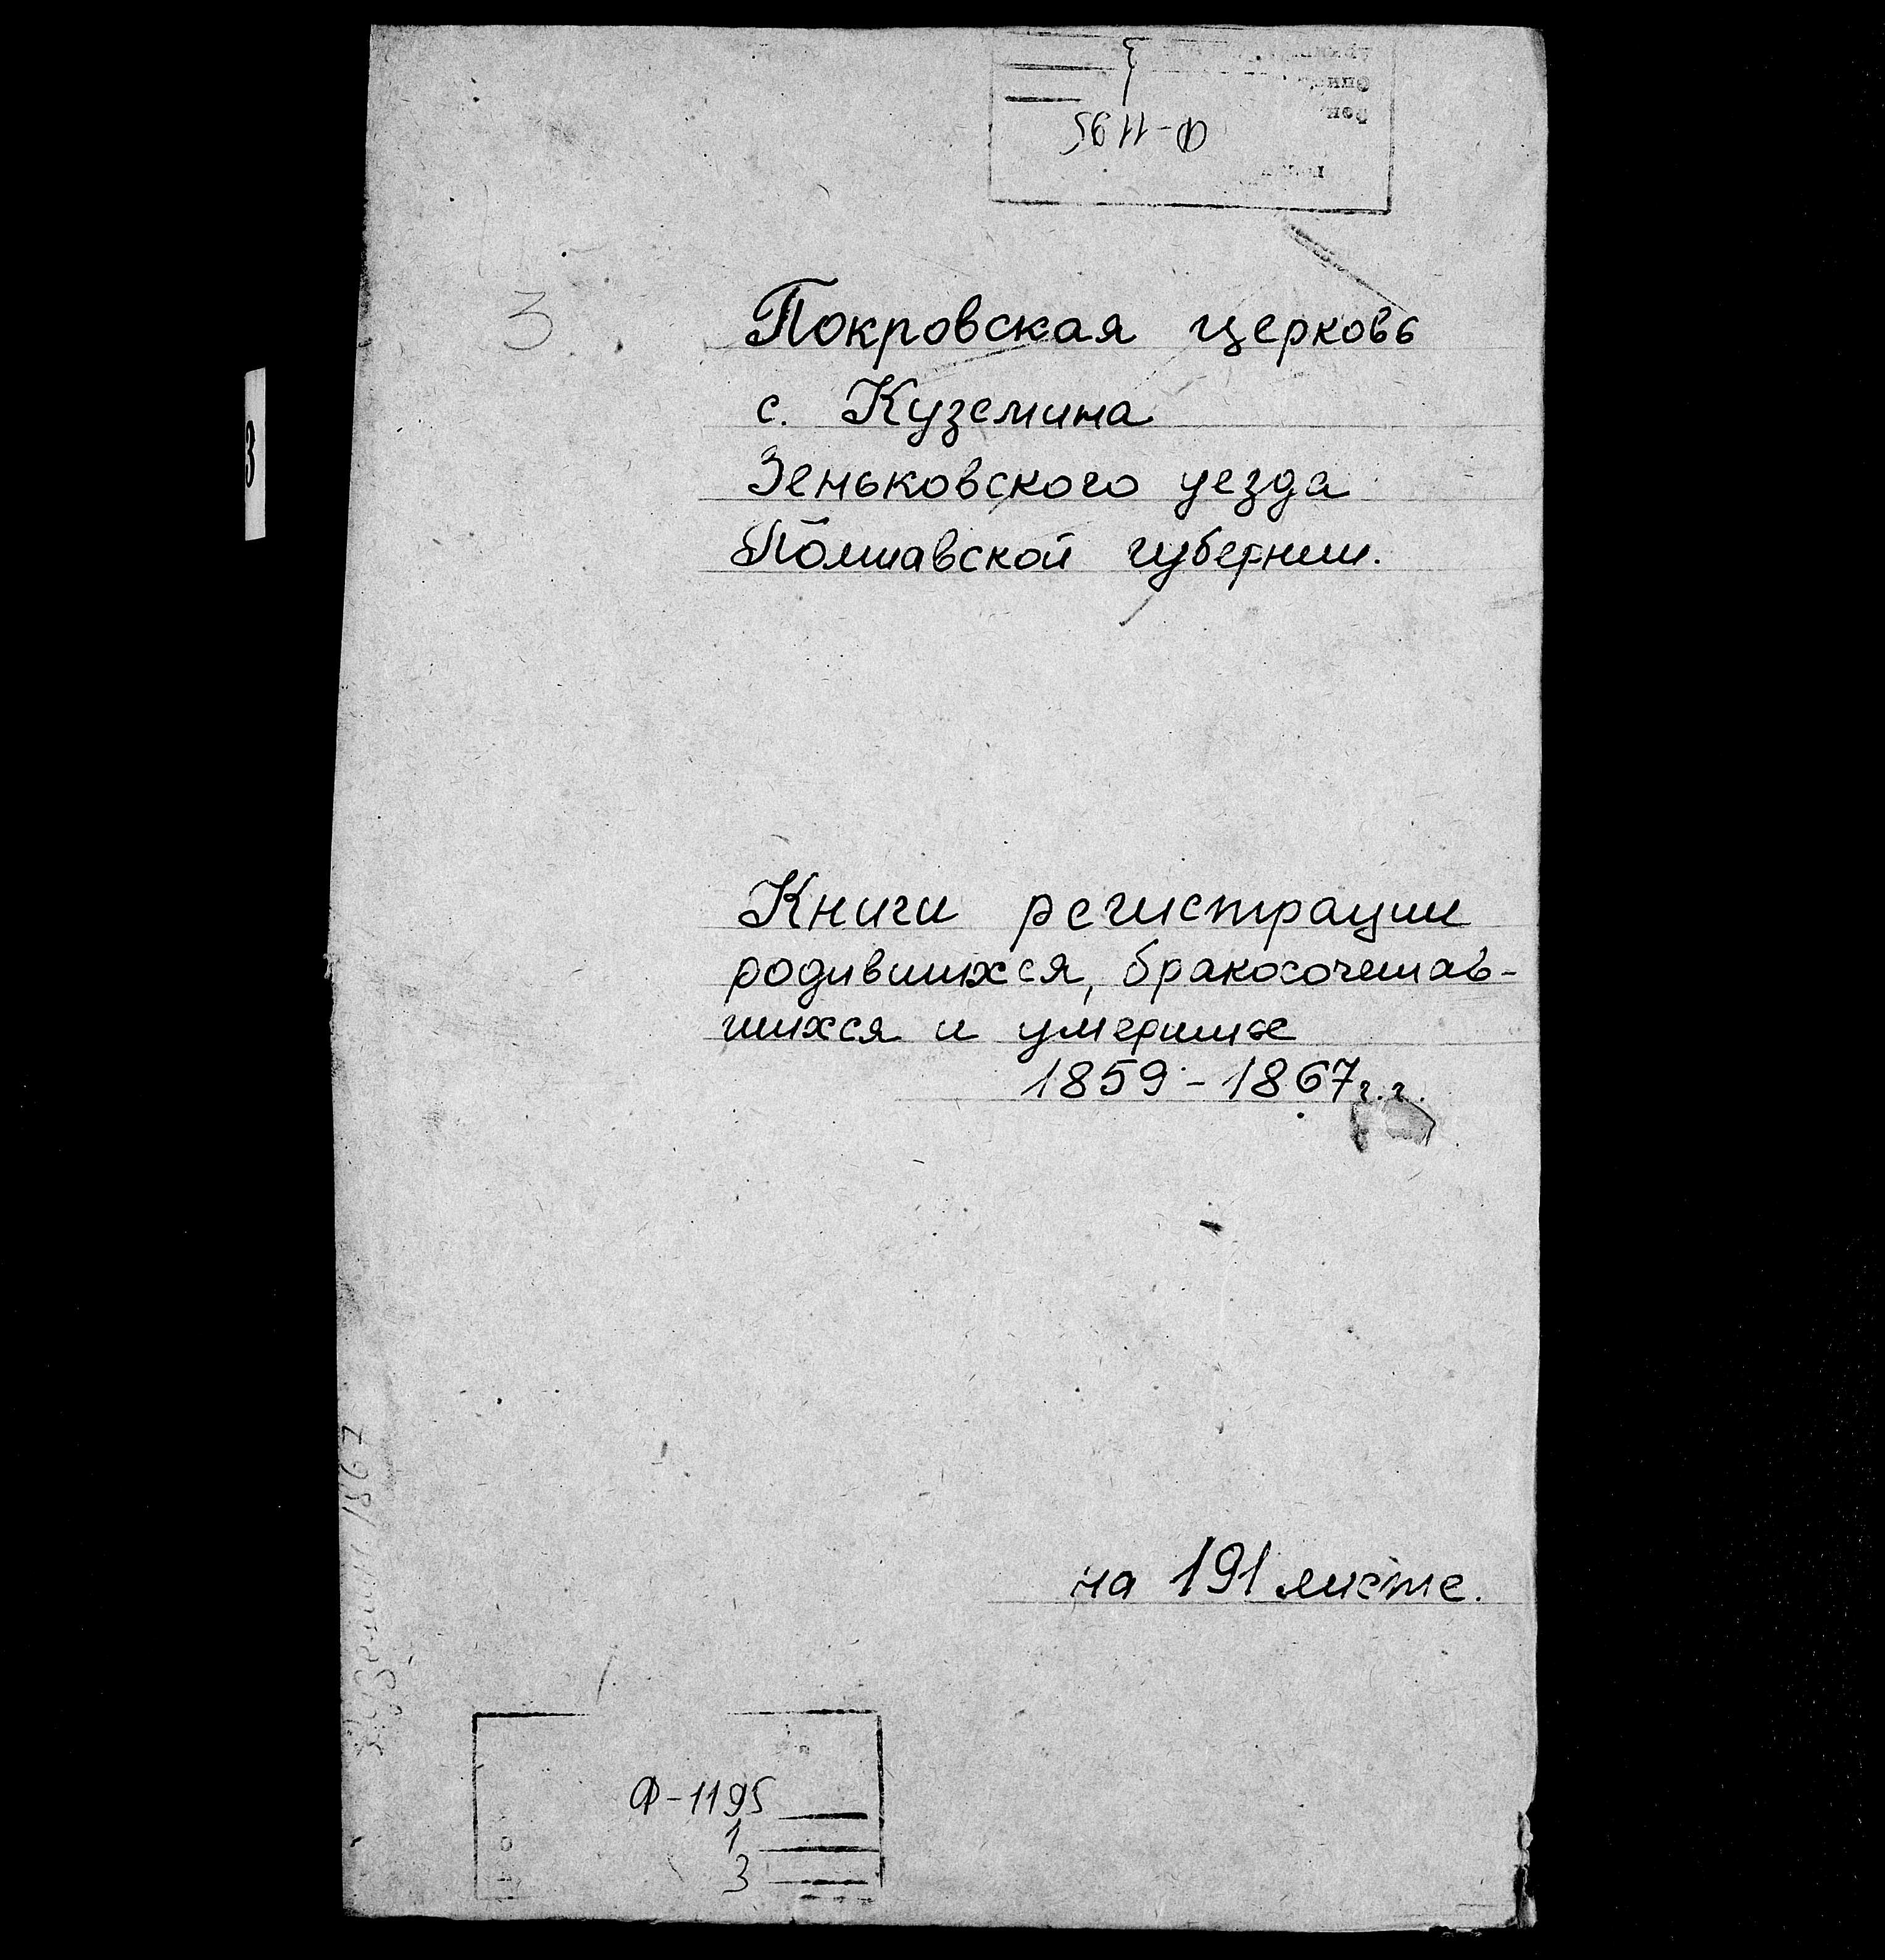 Ф-1195
1
3
3
Покровская церковь
с. Куземина
Зеньковского уезда
Полтавской губернии.
3
Книги регистрации
родившихся, бракосочетав-
шихся и умерших
1859 - 1867 г.г.
1867
на 191 листе.
Ф-1195
1
3